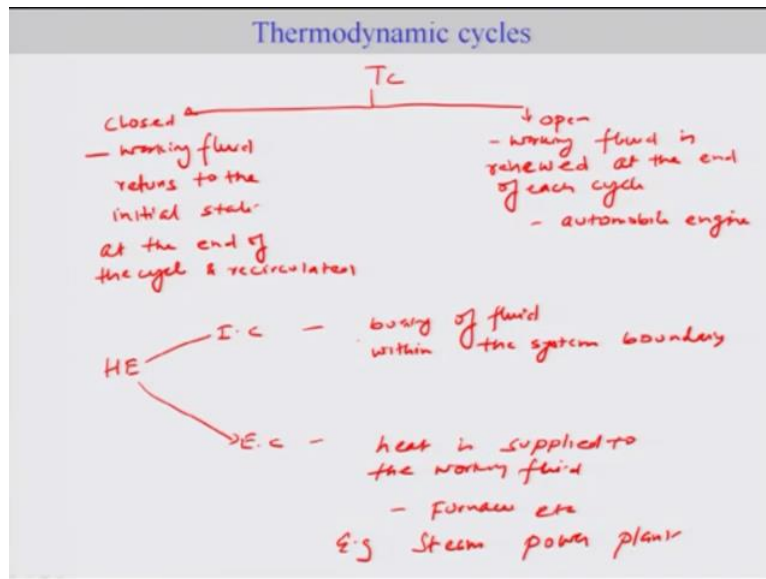 Thermodynamic cycles
TC
closed
- working fluid
retuns to the
initial state
at the end of
the cycel & recirculated
open
- working fluid is
renewed at the end
of each cycle
- automobile engine
HE
I.C -
of fluid
within the system boundary
E.C - heat is supplied to
the working fluid
- Furnace etc
E.g Steam power plant